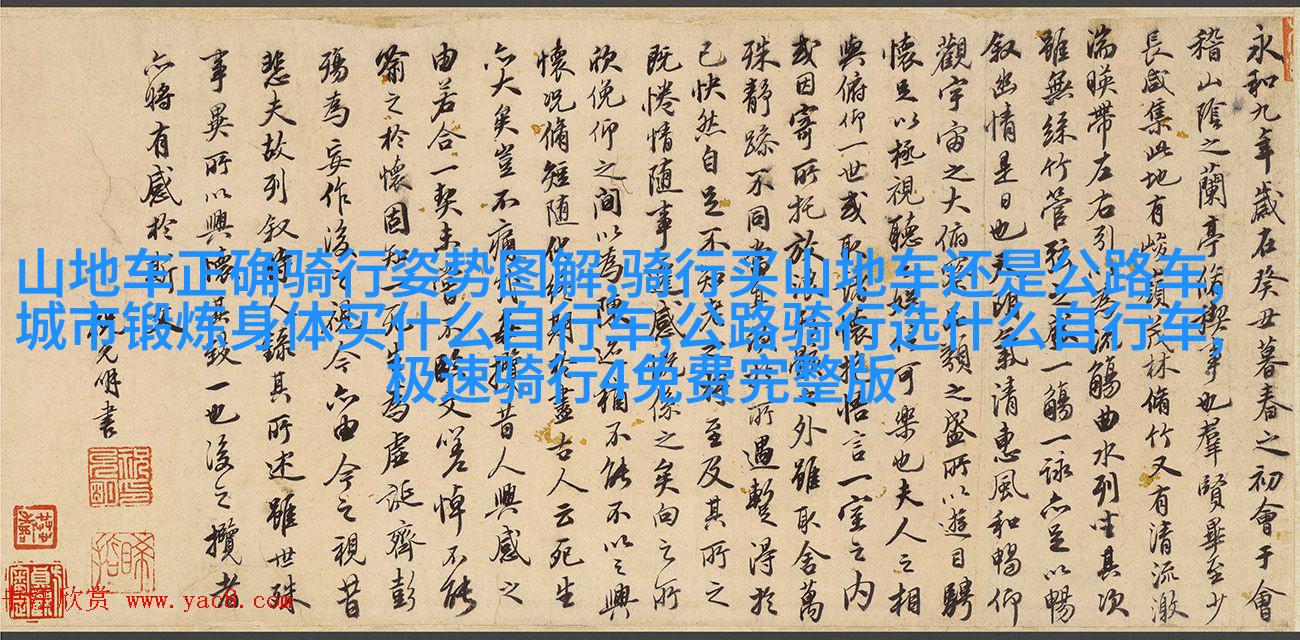 山地车正确骑行姿势图解,骑行买山地车还是公路车,
城市锻炼身体买什么自行车,公路骑行选什么自行车,
极速骑行4免费完整版
永和九年歲在癸丑暮春之初會于會
稽山陰之蘭亭脩稧事也羣賢畢至少
長咸集此地有峻嶺茂林脩竹又有清流激
湍暎帶左右引以為流觴曲水列坐其次
雖無絲竹管弦之一觴一詠亦足以暢
叙幽情是日也天朗氣清惠風和暢仰
觀宇宙之大俯察品類之盛所以遊目騁
懷足以極視聽娛信可樂也夫人之相
與俯仰一世或取諸懷抱悟言一室之內
或因寄所托放之外雖取舍萬
殊靜躁不同當其於所遇蹔得於
己快然自足不知老之至及其所之
既惓情随事感係之矣向之所
欣俛仰之間以為陳迹相不能不以之興
懷況脩短随化終期於盡古人云死生
亦大矣豈不痛哉昔人興感之
由若合一契未嘗不臨文嗟悼不能
喻之於懷固知一死生為虛誕齊彭
殤為妄作後之視今亦由今之視昔
悲夫故列叙時人錄其所述雖世殊
事異所以興懷其致一也後之攬者
亦將有感於斯文
祝允明書
书法欣赏 www.yac8.com